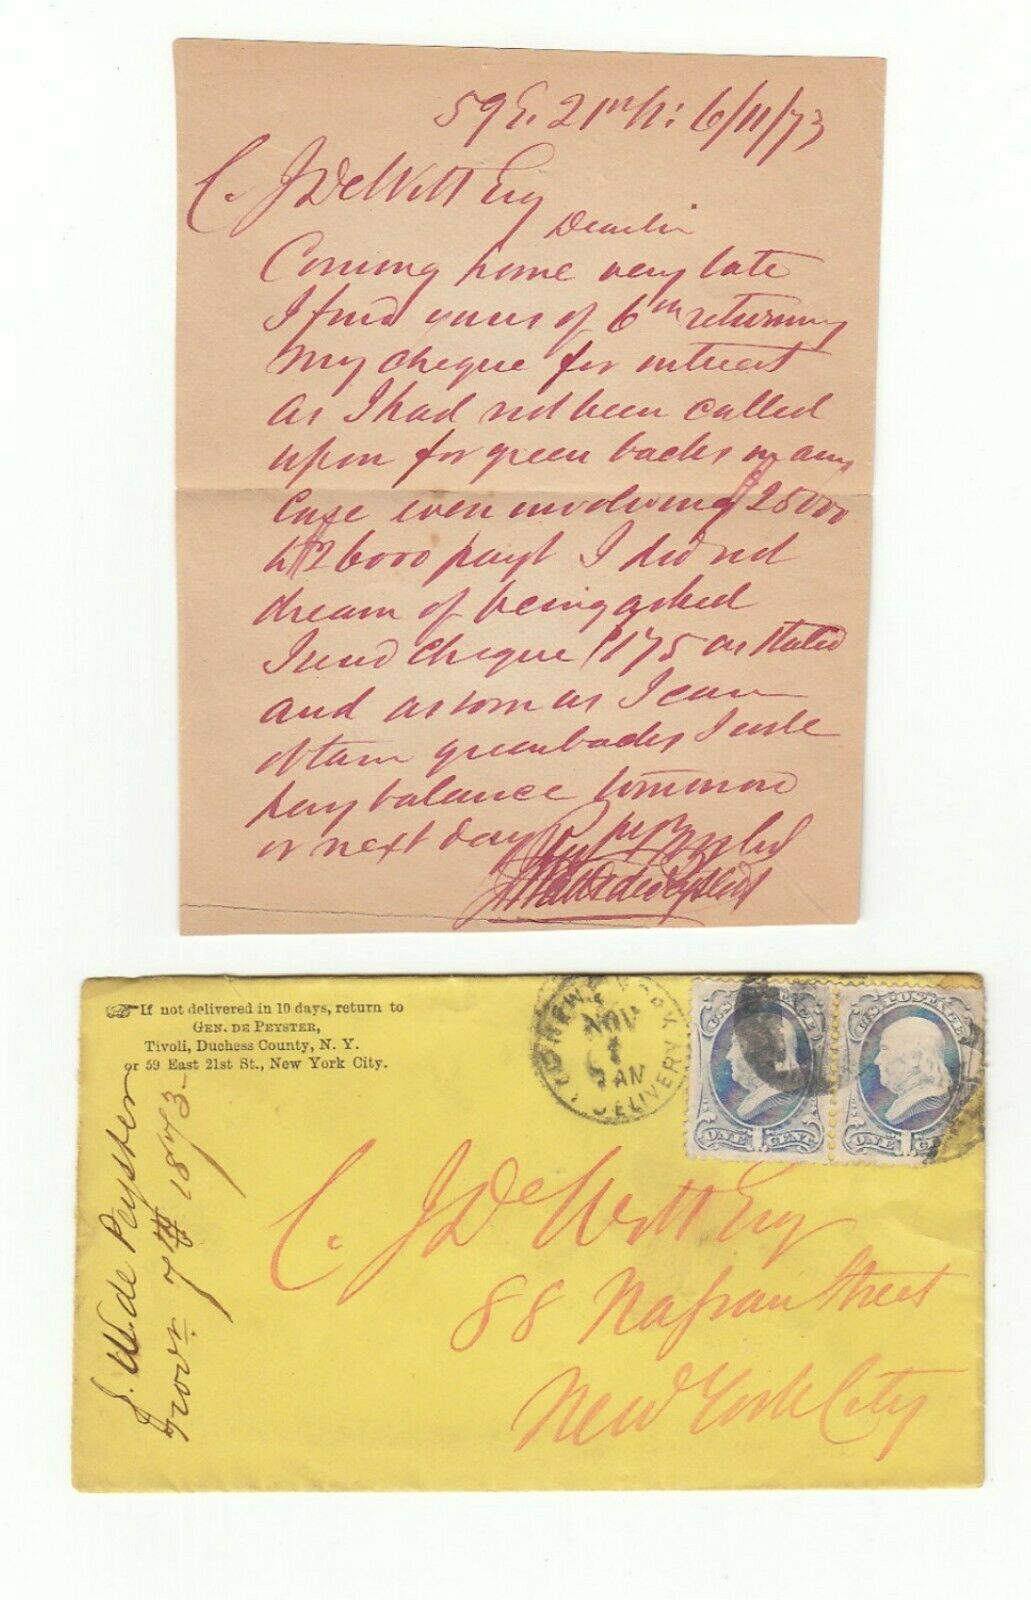 59 E. 21st St: 6/11/73
C. J DeWitt Esq
Dear Sir
Coming home very late
I find yours of 6th returning
my cheque for interest
as I had not been called
upon for green backs in any
case even involving $25000
to $26000 payt I did not
dream of being asked
I send cheque $175 as stated
and as soon as I can
obtain greenbacks I will
pay balance tomorrow
or next day
If not delivered in 10 days, return to
GEN. DE PEYSTER,
Tivoli, Duchess County, N. Y.
or 59 East 21st St., New York City.
J. W. de Peyster
Novr 7th 1873
NEW YORK
NOV
7
AN
DELIVERY
U.S. POSTAGE
ONE 1 CENT
U.S. POSTAGE
ONE 1 CENT
C. J DeWitt Esq
88 Nassau Street
New York City